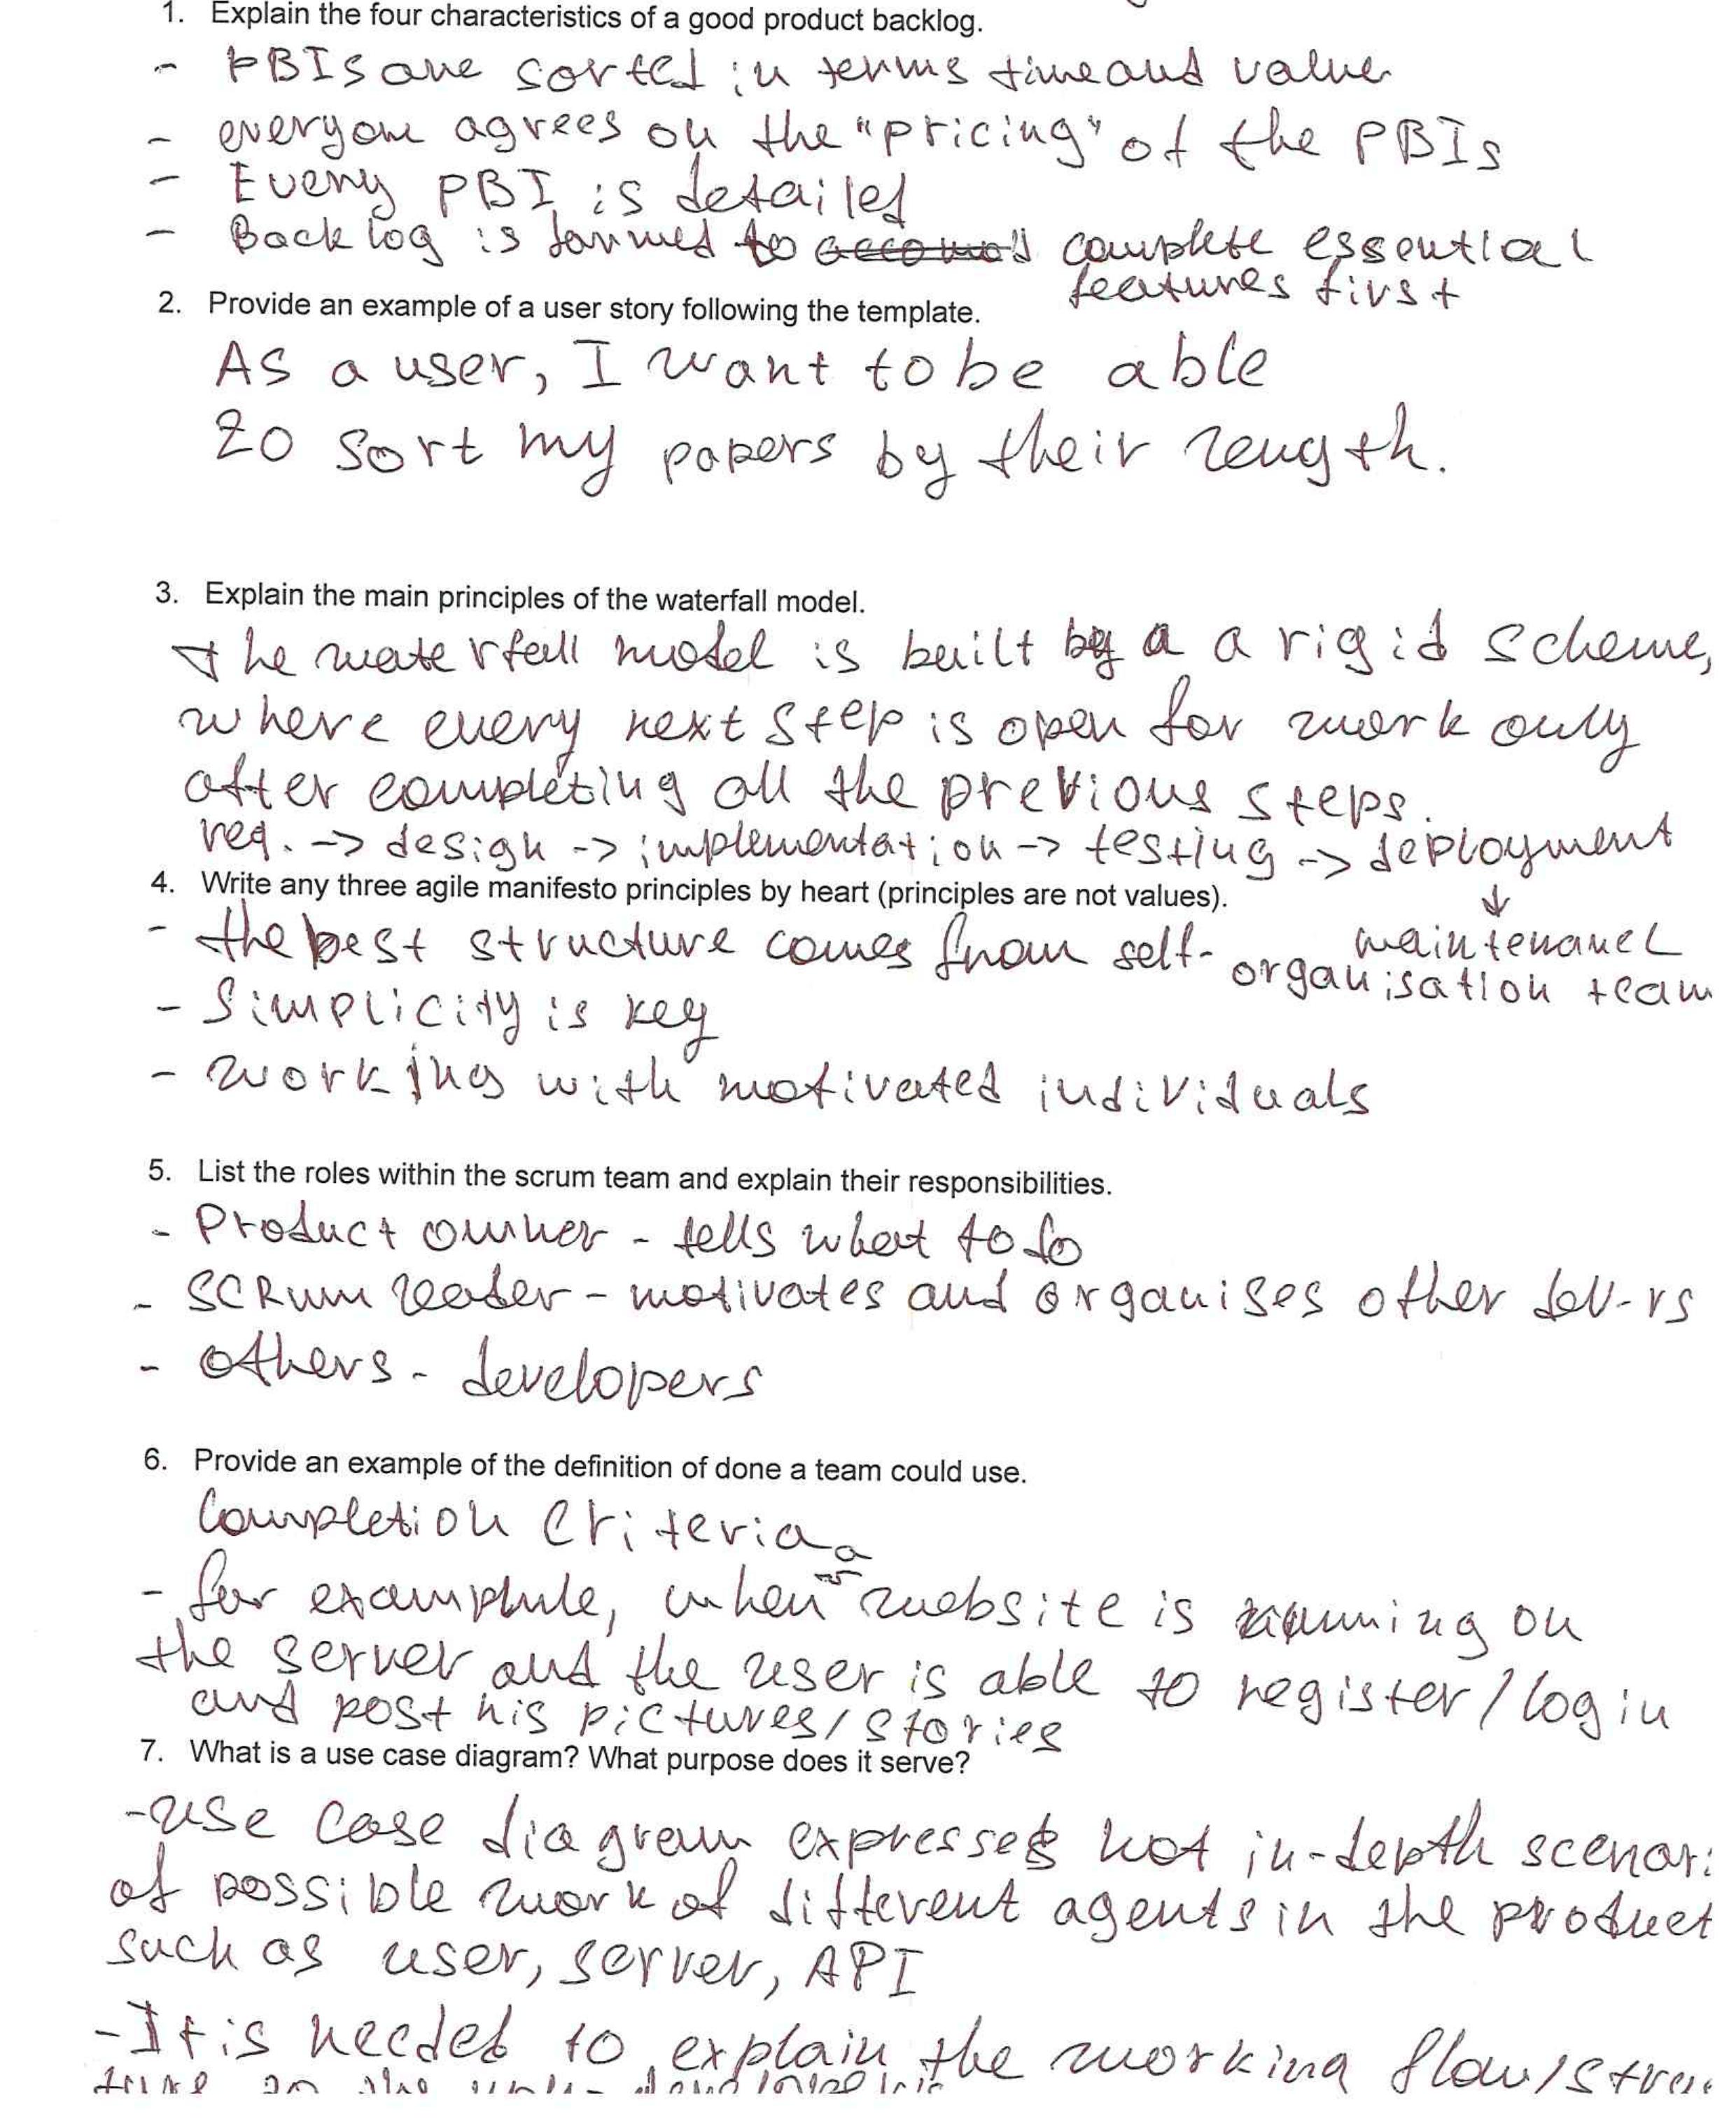 1. Explain the four characteristics of a good product backlog.
- PBIs are sorted in terms time and value
- everyone agrees on the "pricing" of the PBIs
- Every PBI is detailed
- Backlog is formed to complete essential
features first
2. Provide an example of a user story following the template.
As a user, I want to be able
to sort my papers by their length.
3. Explain the main principles of the waterfall model.
the waterfall model is built by a a rigid scheme,
where every next step is open for work only
after completing all the previous steps.
req. -> design -> implementation -> testing -> deployment
↓
maintenance
4. Write any three agile manifesto principles by heart (principles are not values).
- the best structure comes from self-organisation team
- Simplicity is key
- working with motivated individuals
5. List the roles within the scrum team and explain their responsibilities.
- Product owner - tells what to do
- SCRum leader - motivates and organises other dev-rs
- others - developers
6. Provide an example of the definition of done a team could use.
Completion criteria
- for examplule, when a website is running on
the server and the user is able to register/login
and post his pictures/stories
7. What is a use case diagram? What purpose does it serve?
- use case diagram expresses not in-depth scenari
of possible work of different agents in the product
such as user, server, API
- It is needed to explain the working flow/struc